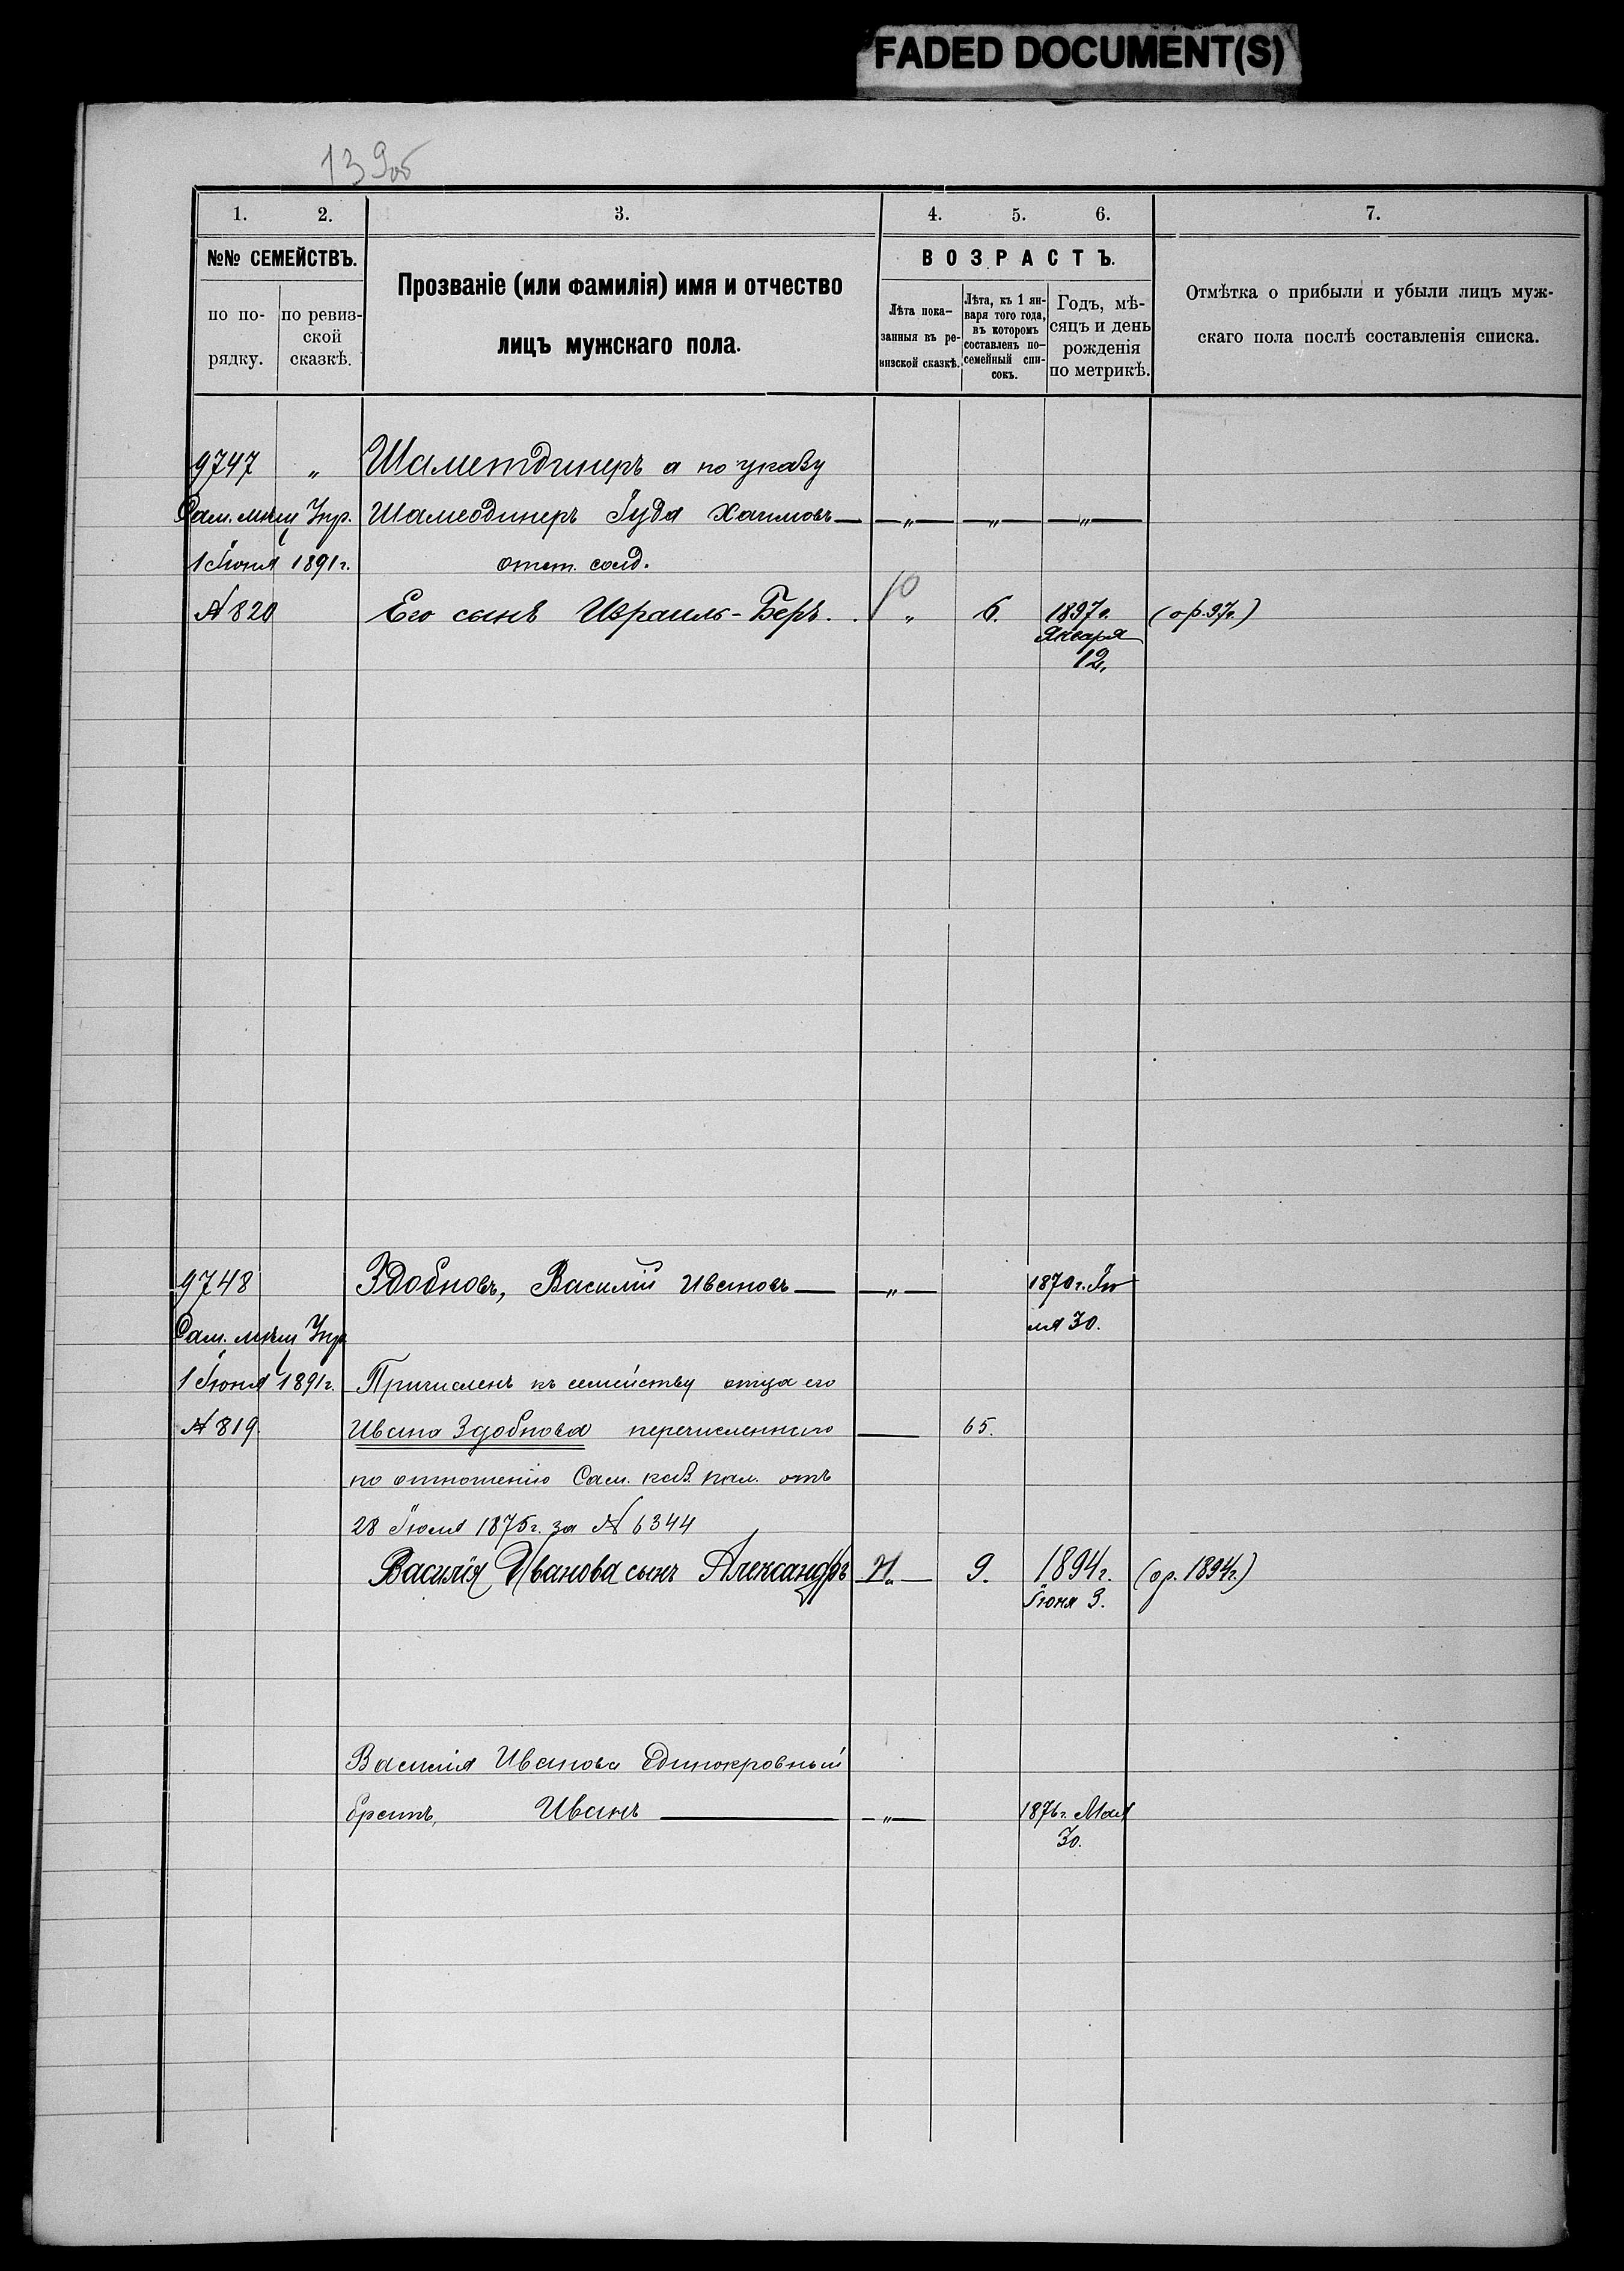 FADED DOCUMENT(S)
139об
1. 2. 3. 4. 5. 6. 7.
№№ СЕМЕЙСТВЪ.
по по-
рядку.
по ревиз-
ской
сказкѣ.
Прозваніе (или фамилія) имя и отчество
лицъ мужскаго пола.
ВОЗРАСТЪ.
Лѣта пока-
занныя въ ре-
визской сказкѣ.
Лѣта, къ 1 ян-
варя того года,
въ которомъ
составленъ по-
семейный спи-
сокъ.
Годъ, мѣ-
сяцъ и день
рожденія
по метрикѣ.
Отмѣтка о прибыли и убыли лицъ муж-
скаго пола послѣ составленія списка.
9747 „ Шаметдинеръ а по указу
Сам. мѣщ Упр. Шамеодинеръ Іуда Хаимовъ — „ — — „ — — „ —
1 Іюня 1891 г. отст. солд.
10
№ 820 Его сынъ Израиль-Беръ. . „ 6. 1897 г. (ор. 97 г.)
Января
12.
9748 Здобновъ, Василій Ивановъ — — „ — 1870 г. Ію
Сам. мѣщ Упр ля 30.
1 Іюня 1891 г. Причисленъ къ семейству отца его
№ 819. Ивана Здобнова перечисленнаго — 65.
по отношенію Сам. каз. пал. отъ
28 Іюля 1875 г. за № 6344
Василія Иванова сынъ Александръ — 9. 1894 г. (ор. 1894 г.)
Іюня 3.
Василія Иванова единокровный
братъ, Иванъ — — „ — 1876 г. Мая
30.